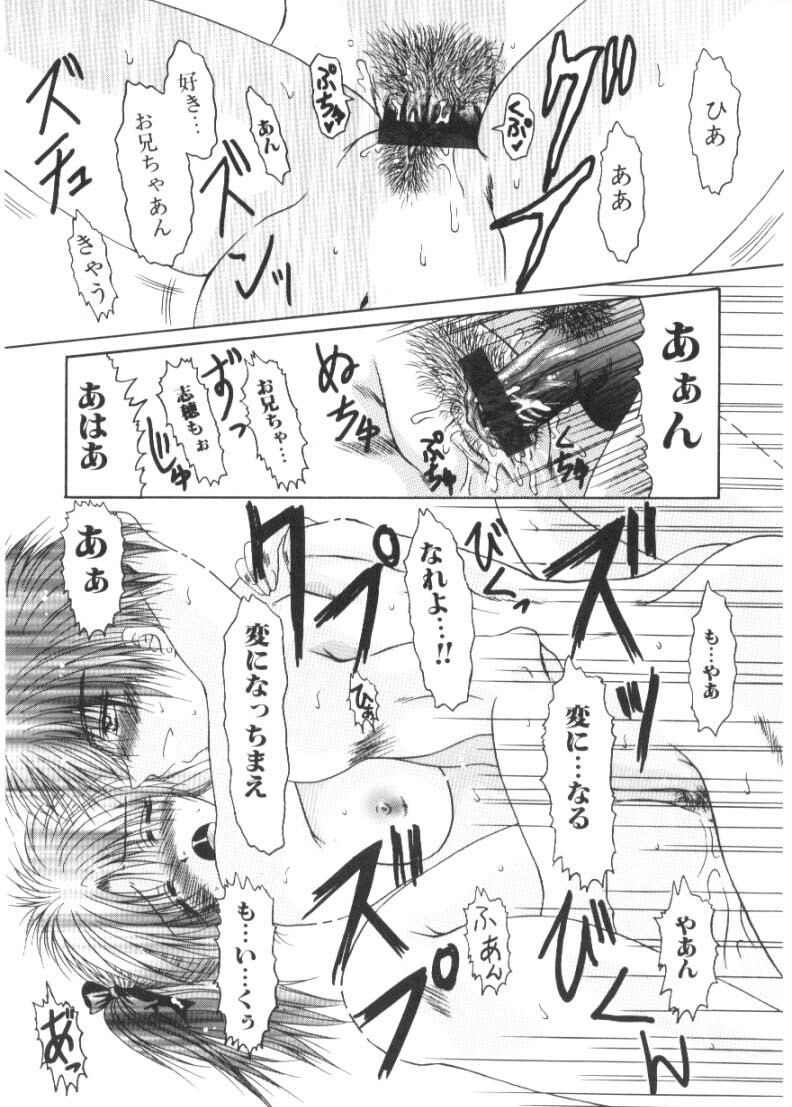 ひあ
ああ
グブイ
くぷ♥
ぷちゅ♥
あん
好き…
お兄ちゃあん
ズンッ
ズチュ
きゃう
あぁん
くちゅ
ぷちゅ
ぬちゅ
お兄ちゃ…
志穂もぉ
ずっ
じゅ
あはあ
も…やあ
ズッ
変に…なる
びくっ
なれよ…!!
クプ
ひぁ
変になっちまえ
あぁ
やあん
びくん
ふあん
ズプ
も…い…くぅ
あ゛っ